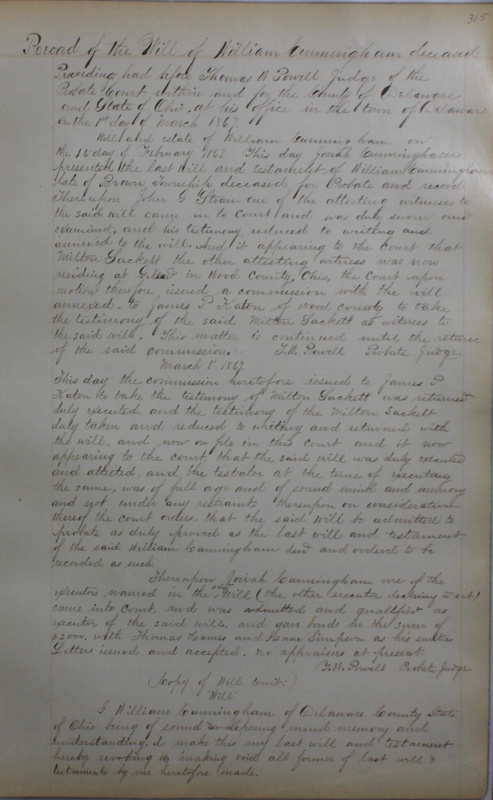 315
Record of the Will of William Cunningham deceased
Proceeding had before Thomas W Powell Judge of the
Probate Court within and for the County of Delaware
and State of Ohio, at his office in the town of Delaware
on the 1st day of March 1867
Will and estate of William Cunningham on
the 15 day of February 1867 This day Josiah Cunningham
presented the last will and testament of William Cunningham
late of Brown Township deceased for Probate and record
Thereupon John C one of the attesting witnesses to
the said will came in to Court and was duly sworn and
examined, and his testimony reduced to writing and
annexed to the will. And it appearing to the Court that
Milton Sackett the other attesting witness was now
residing at in Wood County, Ohio, the Court upon
motion therefore issued a commission with the will
annexed, to James P Katon of Wood county to take
the testimony of the said Milton Sackett as witness to
the said will. This matter is continued until the return
of the said commission. T.W. Powell Probate Judge
March 1st 1867
This day the commission heretofore issued to James P
Katon to take the testimony of Milton Sackett was returned
duly executed and the testimony of the Milton Sackett
duly taken and reduced to writing and returned with
the will, and now on file in this Court and it now
appearing to the court, that the said will was duly executed
and attested, and the testator at the time of executing
the same, was of full age and of sound mind and memory
and not under any restraint. Thereupon on consideration
thereof the court orders that the said will be admitted to
probate as duly proved as the last will and testament
of the said William Cunningham decd and orderd to be
recorded as such
Thereupon Josiah Cunningham one of the
executors named in the Will (the other executor declining to act)
came into Court, and was admitted and qualified as
executor of the said will, and gave bonds in the sum of
$2000, with Thomas and Isaac Simpson as his sureties
Letters issued and accepted. no appraisers at present.
T.W. Powell Probate Judge
(Copy of Will towit:)
Will
I William Cunningham of Delaware County State
of Ohio being of sound disposing mind memory and
understanding, do make this my last will and testament
hereby revoking & making void all former of last will &
testaments by me heretofore made.